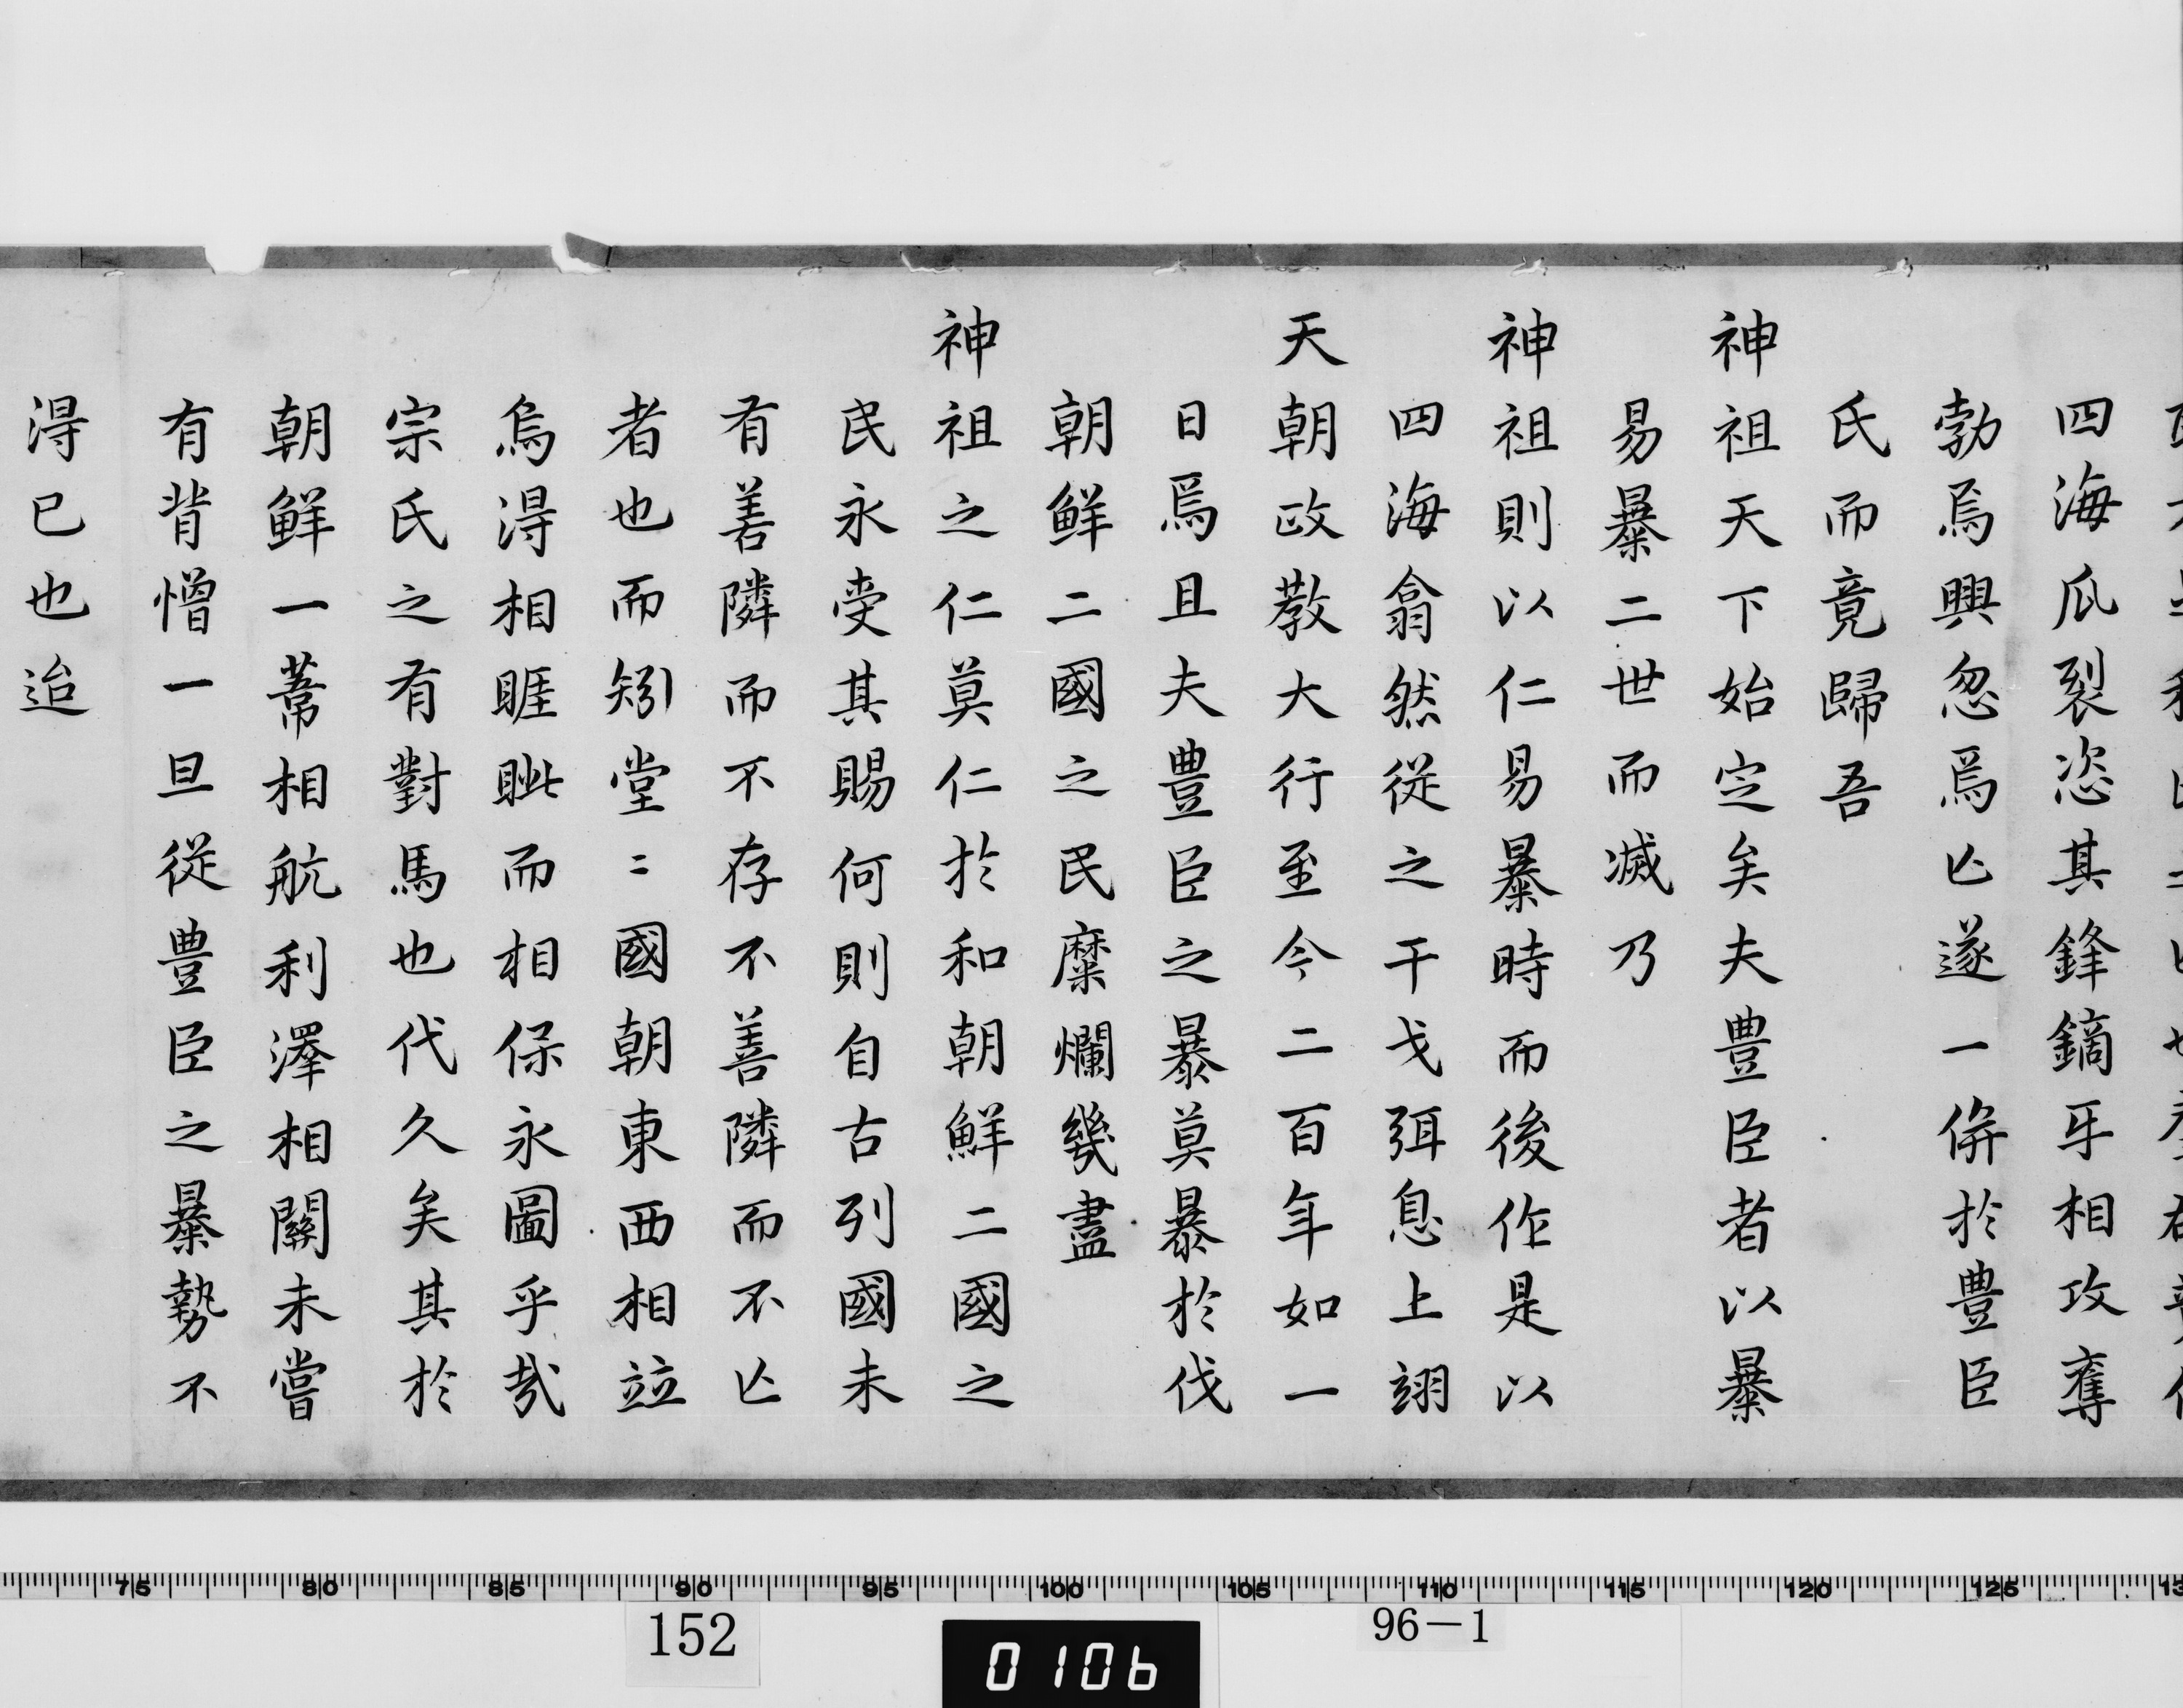 四海瓜裂恣其鋒鏑牙相攻奪
勃焉興忽焉亾遂一併於豊臣
氏而竟歸吾
神祖天下始定矣夫豊臣者以暴
易暴二世而滅乃
神祖則以仁易暴時而後作是以
四海翕然從之干戈弭息上翊
天朝政教大行至今二百年如一
日焉且夫豊臣之暴莫暴於伐
朝鮮二國之民糜爛幾盡
神祖之仁莫仁於和朝鮮二國之
民永受其賜何則自古列國未
有善隣而不存不善隣而不亾
者也而矧堂〻國朝東西相竝
烏得相睚眦而相保永圖乎哉
宗氏之有對馬也代久矣其於
朝鮮一葦相航利澤相關未嘗
有背憎一旦從豊臣之暴勢不
得已也迨
75 80 85 90 95 100 105 110 115 120 125
152
0106
96-1